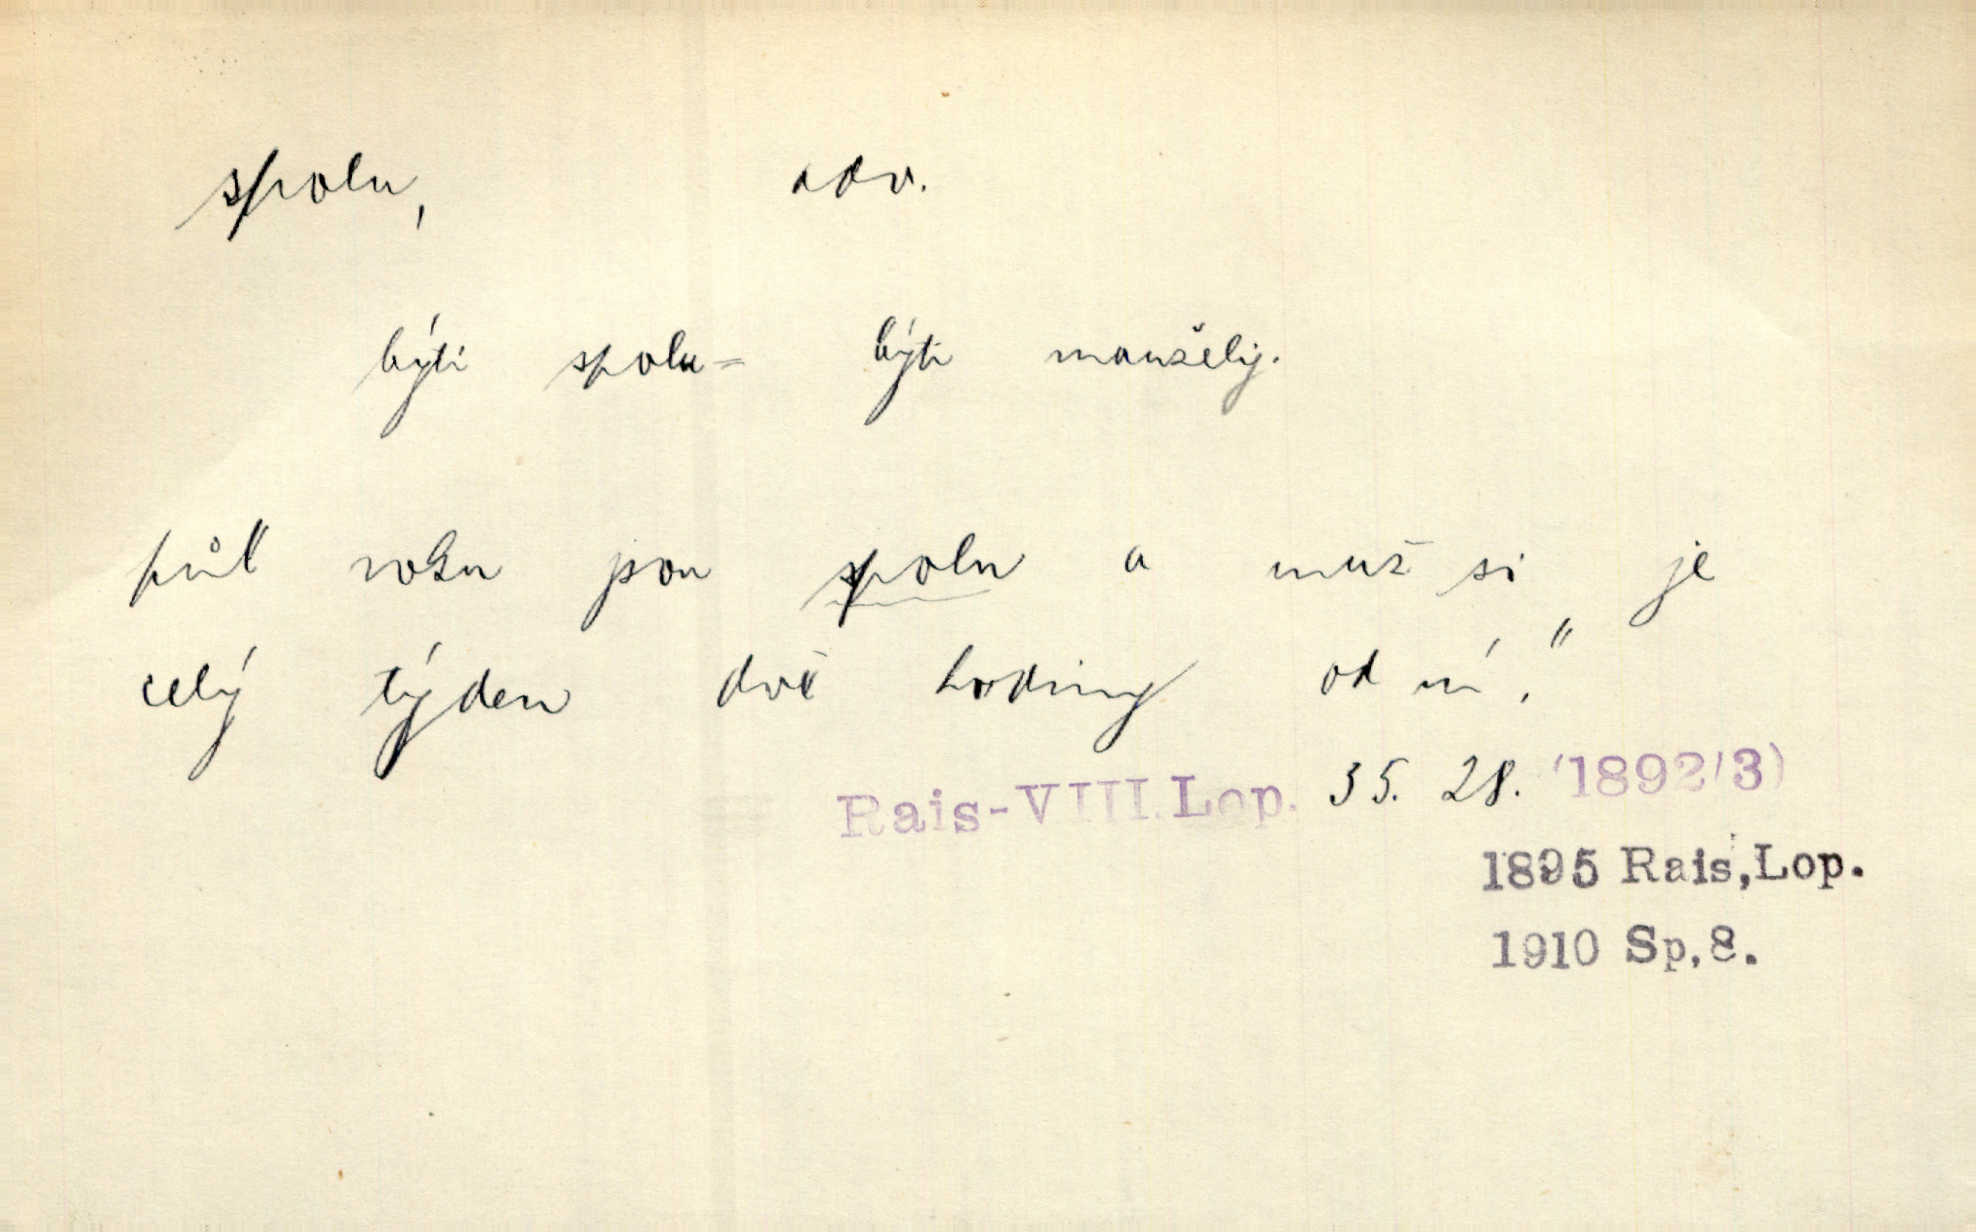 spolu, adv.
býti spolu = býti manžely.
půl roku jsou spolu a muž si je
celý týden dvě hodiny od ní."
Rais-VIII.Lop. 35. 28. (1892/3)
1895 Rais,Lop.
1910 Sp,8.